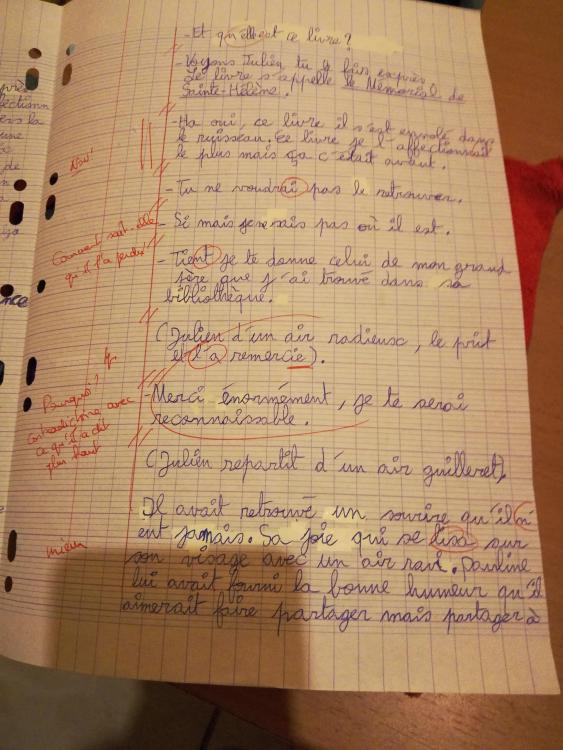 - Et qu'elle est ce livre ?
- Voyons Julien tu y fais exprès
Le livre s'appelle le Mémorial de
Sainte-Hélène.
- Ha oui, ce livre il s'est envolé dans
le ruisseau. Ce livre je l'affectionnait
le plus mais ça c'était avant.
Non!
- Tu ne voudrai pas le retrouver.
Comment sait-elle
qu'il l'a perdu?
- Si mais je ne sais pas où il est.
- Tient je te donne celui de mon grand
père que j'ai trouvé dans sa
bibliothèque.
(Julien d'un air radieux, le prit
et l'a remercie).
Pourquoi?
contradictoire avec
ce qu'il a dit
plus haut
- Merci énormément, je te serai
reconnaissable.
(Julien repartit d'un air guilleret).
Il avait retrouvé un sourire qu'il n'
ent jamais. Sa joie qui se lisa sur
mieux
son visage avec un air ravi. Pauline
lui avait fourni la bonne humeur qu'il
aimerait faire partager mais partager à